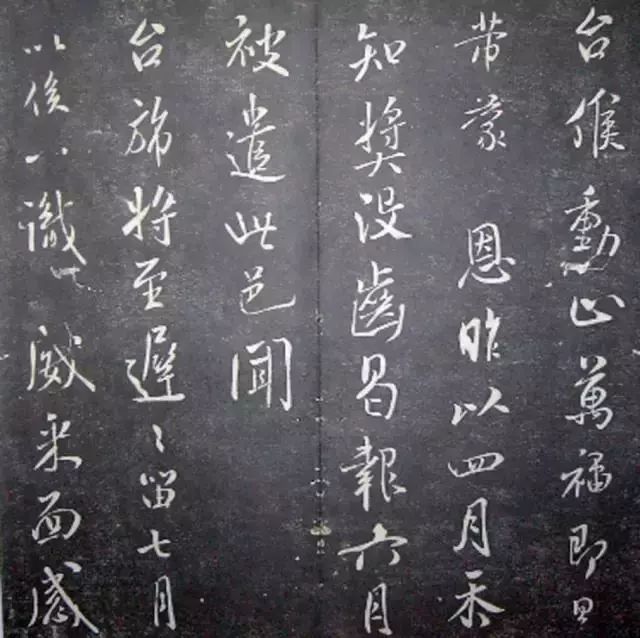 台候動止萬福即日
芾蒙 恩昨以四月忝
知獎没齒曷報六月
被遣此邑聞
台旆將至遲〻留七月
以俟以識 威采面感